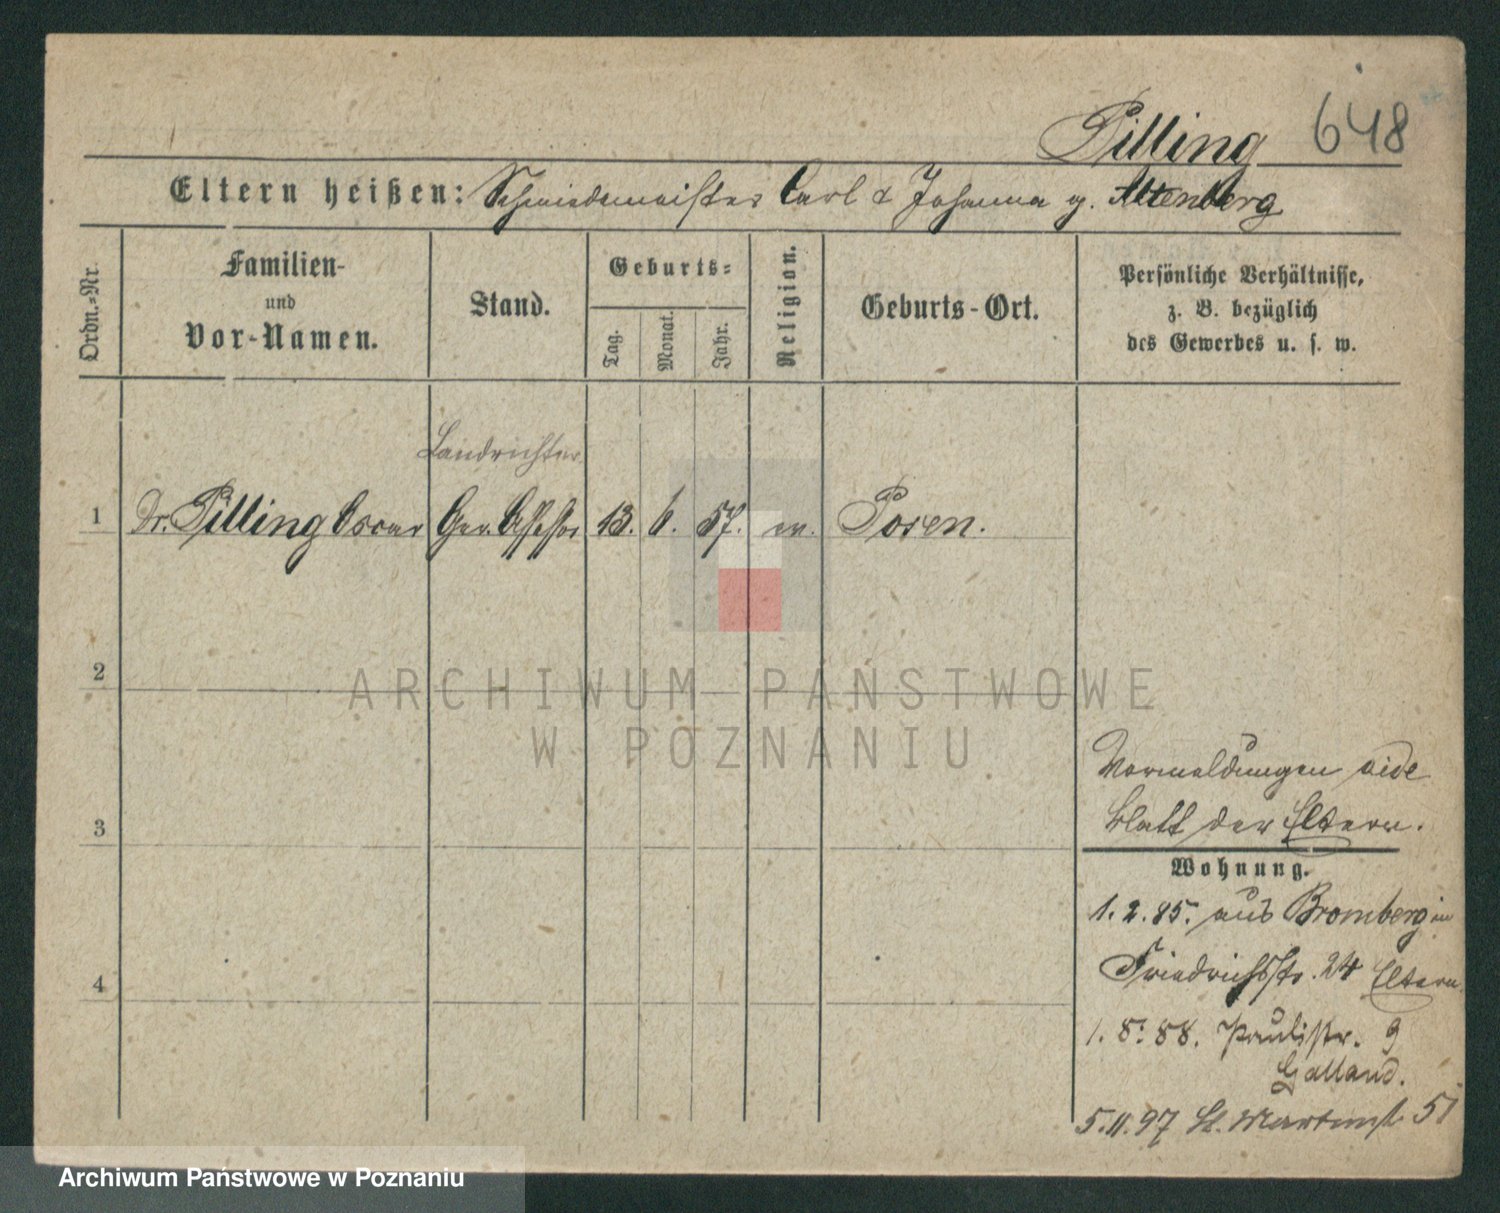 Pilling 648
Eltern heißen: Schmiedemeister Carl & Johanna g. Altenberg
Ordn.-Nr.
Familien-
und
Vor-Namen.
Stand.
Geburts-
Tag.
Monat.
Jahr.
Religion.
Geburts-Ort.
Persönliche Verhältnisse,
z. B. bezüglich
des Gewerbes u. s. w.
Landrichter
1 Dr. Pilling Oscar Ger. Assessor 13. 6. 57. ev. Posen.
2
ARCHIWUM PAŃSTWOWE
W POZNANIU
Vormeldungen vide
Blatt der Eltern.
3
Wohnung.
1. 2. 85. aus Bromberg in
Friedrichsstr. 24 Eltern.
4
1. 8. 88. Paulistr. 9
Galland.
5.11.97 St. Martinst 51
Archiwum Państwowe w Poznaniu